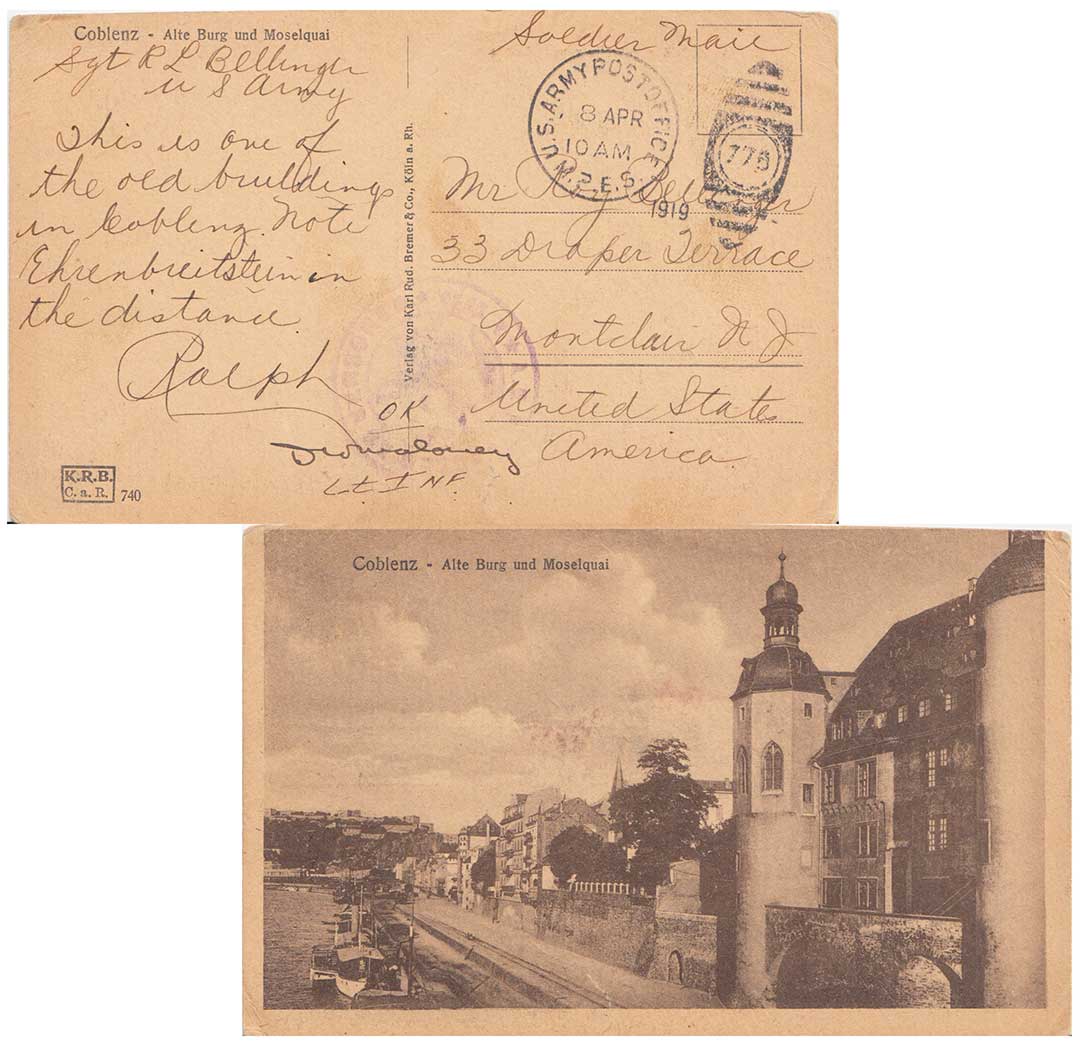 Coblenz - Alte Burg und Moselquai
Sgt R L Bellinger
U S Army
This is one of
the old buildings
in Coblenz. Note
Ehrenbreitstein in
the distance.
Ralph
OK
Lt Inf
K.R.B.
C. a. R. 740
Verlag von Karl Rud. Bremer & Co., Köln a. Rh.
Soldier Mail
U.S. ARMY POST OFFICE
8 APR
10 AM
M.P.E.S.
1919
Mr Roy Bellinger
33 Draper Terrace
Montclair N J
United States
America
Coblenz - Alte Burg und Moselquai